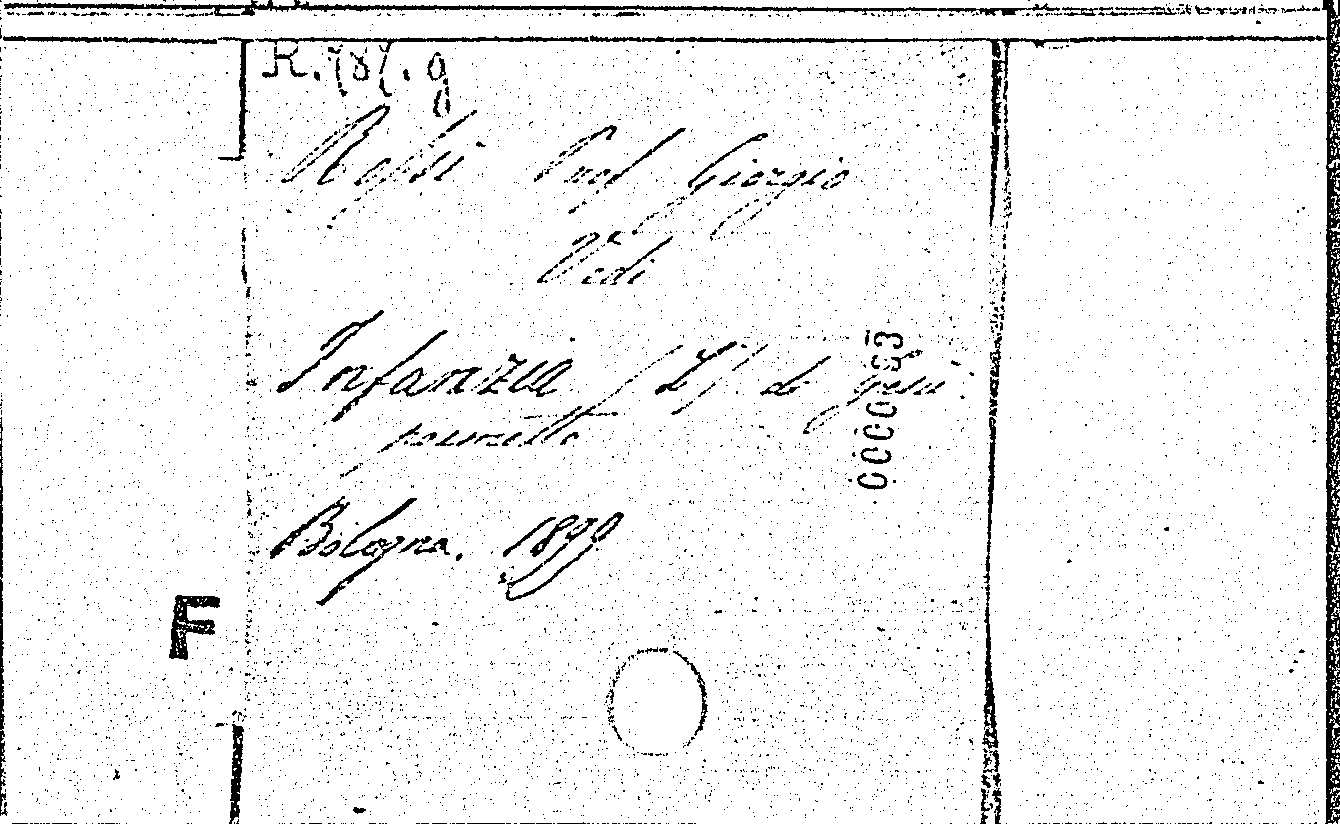 Rossi Prof Giorgio
Vedi
Infanzia (L') di Gesù
poemetto
Bologna. 1899
F